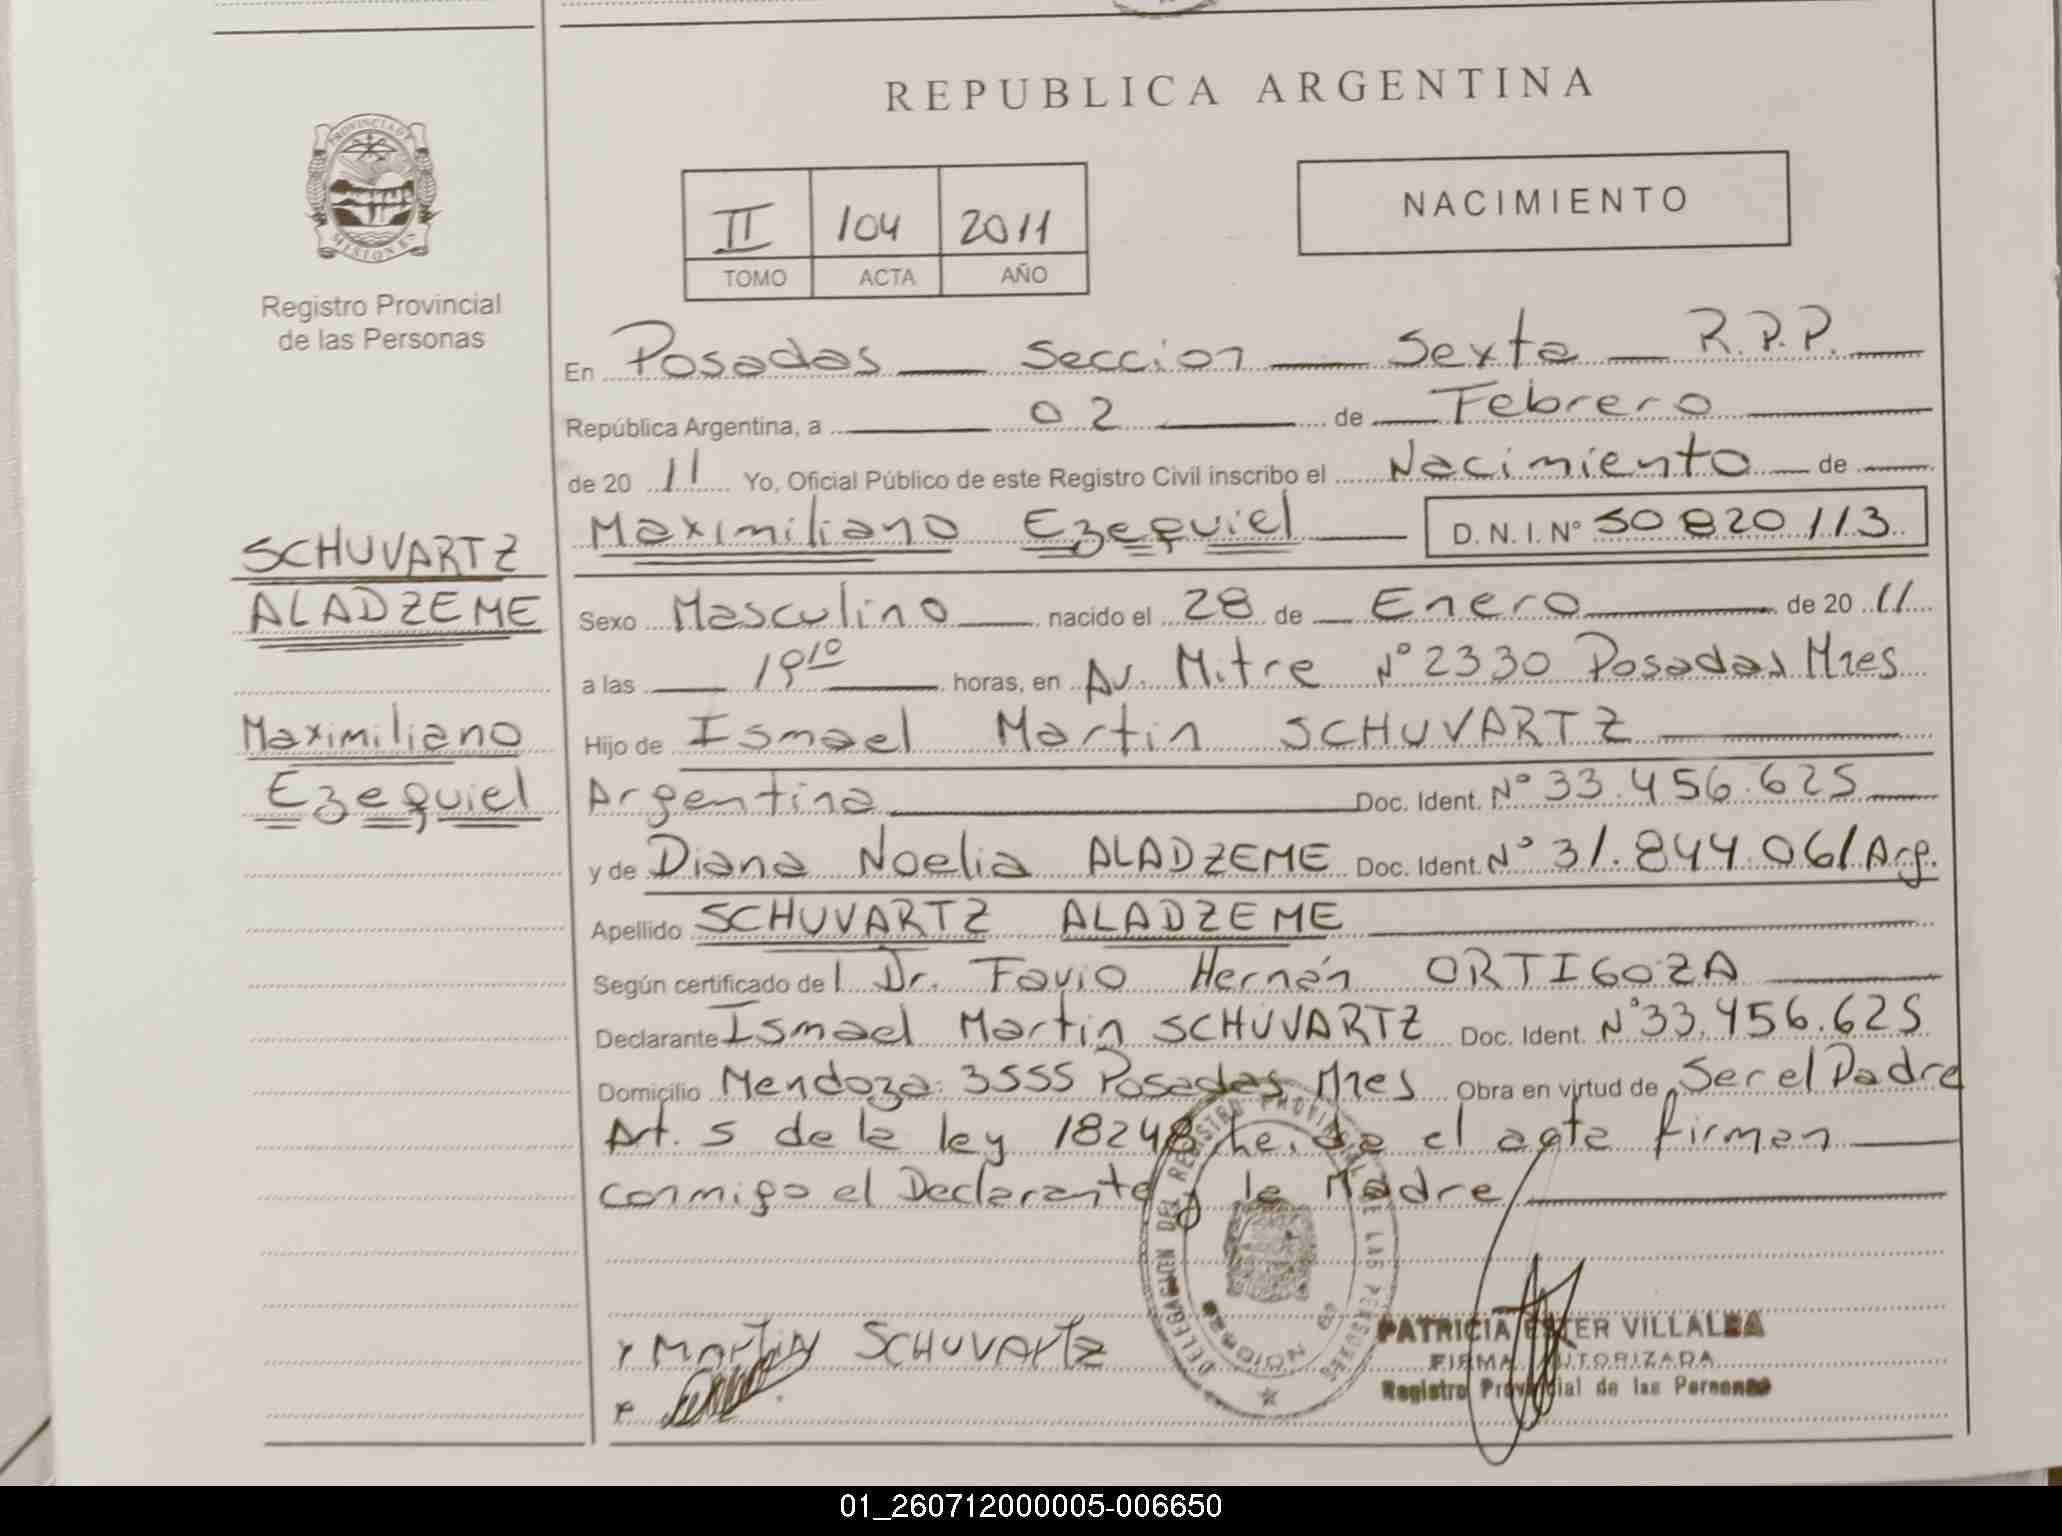 REPUBLICA ARGENTINA
PROVINCIA DE
MISIONES
Registro Provincial
de las Personas
II 104 2011
TOMO ACTA AÑO
NACIMIENTO
En Posadas Seccion Sexta R.P.P.
República Argentina, a 02 de Febrero
de 20 11 Yo, Oficial Público de este Registro Civil inscribo el Nacimiento de
Maximiliano Ezequiel D. N. I. Nº 50 820 113
SCHUVARTZ
ALADZEME
Maximiliano
Ezequiel
Sexo Masculino nacido el 28 de Enero de 20 11
a las 19 10 horas, en Av. Mitre Nº 2330 Posadas Mnes
Hijo de Ismael Martin SCHUVARTZ
Argentina Doc. Ident. Nº 33.456.625
y de Diana Noelia ALADZEME Doc. Ident. Nº 31.844.061 Arg.
Apellido SCHUVARTZ ALADZEME
Según certificado del Dr. Favio Hernán ORTIGOZA
Declarante Ismael Martin SCHUVARTZ Doc. Ident. Nº 33.456.625
Domicilio Mendoza: 3555 Posadas Mnes Obra en virtud de Ser el Padre
Art. 5 de la ley 18248 Leida el acta firman
conmigo el Declarante y la Madre
DELEGACION DEL REGISTRO PROVINCIAL DE LAS PERSONAS
x MARTIN SCHUVARTZ
PATRICIA ESTER VILLALBA
FIRMA AUTORIZADA
Registro Provincial de las Personas
01_260712000005-006650